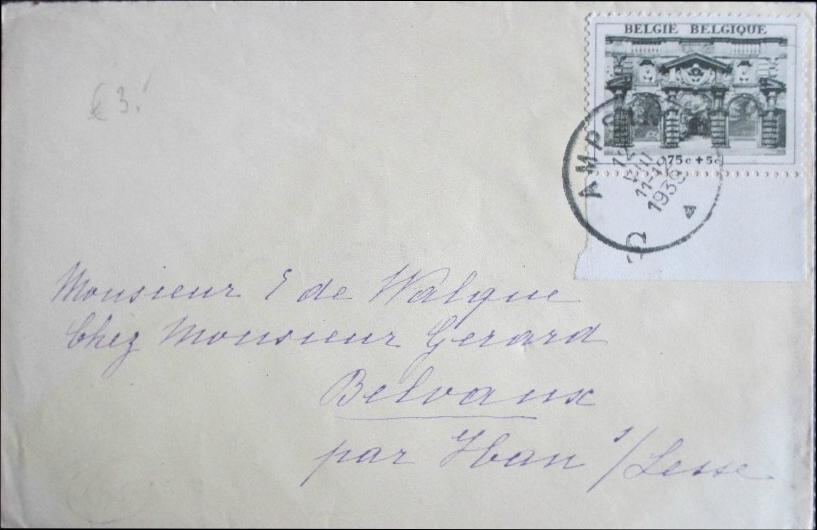 BELGIE BELGIQUE
75c + 5c
AMPS
12
VIII
11-12
1939
€ 3.
Monsieur E de Walque
Chez Monsieur Gerard
Belvaux
par Han s/Lesse